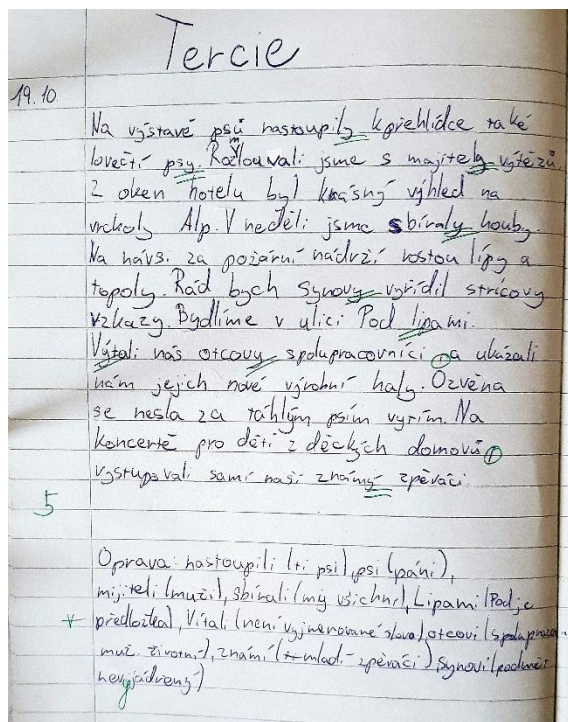 Tercie
19.10.
Na výstavě psů nastoupily k přehlídce také
lovečtí psy. Rozmlouvali jsme s majitely vítězů.
Z oken hotelu byl krásný výhled na
vrcholy Alp. V neděli jsme sbíraly houby.
Na návsi za požární nádrží rostou lípy a
topoly. Rád bych synovy vyřídil strícovy
vzkazy. Bydlíme v ulici Pod lipami.
Výtali nás otcovy spolupracovníci a ukázali
nám jejich nové výrobní haly. Ozvěna
se nesla za táhlým psím vytím. Na
koncertě pro děti z děckých domovů
vystupovali samí naši známý zpěváci.
5
Oprava: nastoupili (ti psi), psi (páni),
mijiteli (muži), sbírali (my všichni), Lipami (Pod je
předložka), Vítali (není vyjmenované slovo), otcovi (spolupracov.
muž. životní), známí (mladí zpěváci), synovi (podmět
nevyjádrený)